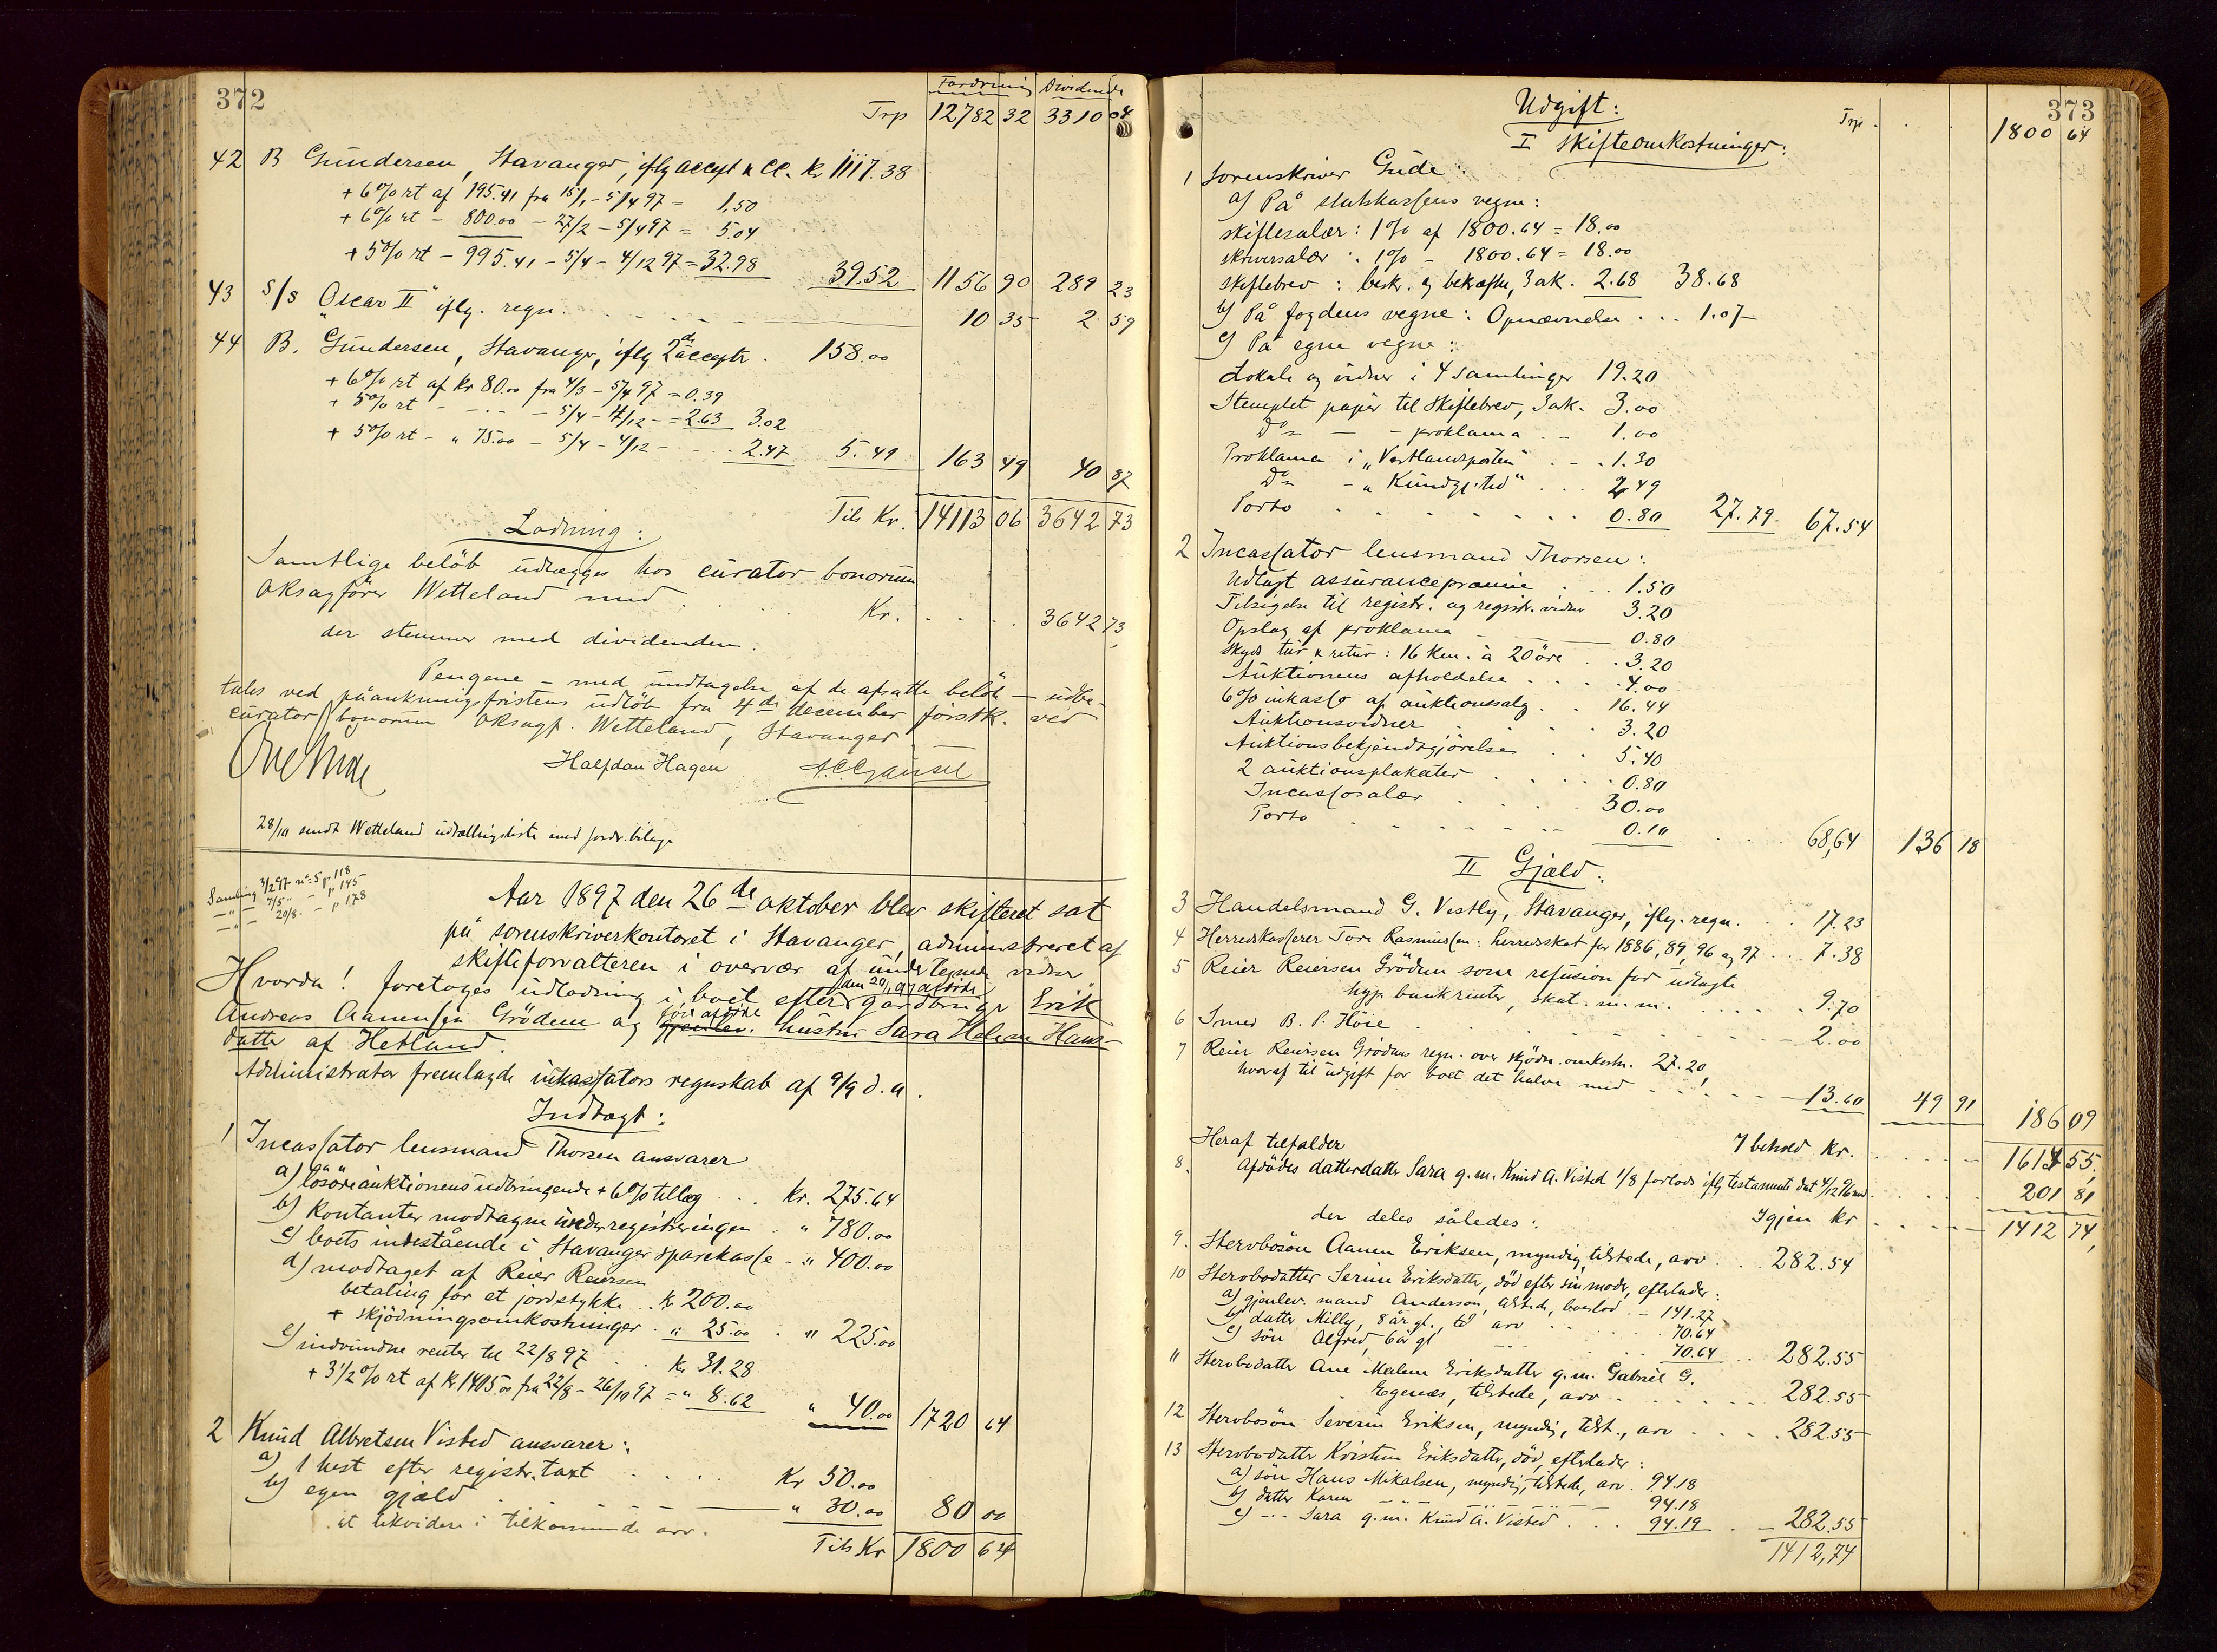 372
Fordring Dividende
Trp 12782 32 3310 04
42 B Gundersen, Stavanger, iflg accept & cc. Kr 1117.38
+ 6% rt af 195.41 fra 15/1 - 5/4 97 = 1,50
+ 6% rt - 800.00 - 27/2 - 5/4 97 = 5.04
+ 5% rt - 995.41 - 5/4 - 4/12 97 = 32.98 39.52 1156 90 289 23
43 S/S "Oscar II" iflg. regn. 10 35 2 59
44 B. Gundersen, Stavanger, iflg 2de accepter . 158.00
+ 6% rt af Kr 80.00 fra 4/3 - 5/4 97 = 0.39
+ 5% rt - - - 5/4 - 4/12 - = 2.63 3.02
+ 5% rt - " 75.00 - 5/4 - 4/12 - 2.47 5.49 163 49 40 87
Tils Kr. 14113 06 3642 73
Lodning:
Samtlige beløb udlægges hos curator bonorum
oksagfører Wetteland med Kr. 3642 73
der stemmer med dividenden.
Pengene - med undtagelse af de afsatte beløb - udbe-
tales ved påankningsfristens udløb fra 4de december førstk. ved
curator bonorum oksagf. Wetteland, Stavanger
Halfdan Hagen
28/10 sendt Wetteland udtællingsliste med fordr. bilage
Samling 3/2 97 no 5 p 118
-"- 7/5 - - p 145
-"- 20/8 - p 178
Aar 1897 den 26de oktober blev skifteret sat
på sorenskriverkontoret i Stavanger, administreret af
skifteforvalteren i overvær af undertegnede vidner
Hvorda! foretoges udlodning i boet efter gårdbruger Erik
Andreas Aanensen Grødem og før afdøde gjenlev. hustru Sara Helene Hans-
datter af Hetland.
Administrator fremlagde inkassators regnskab af 9/9 d.a.
Indtægt:
1 Incassator lensmand Thorsen ansvarer
a) løsøreauktionens udbringende + 6% tillæg . . Kr. 275.64
b) Kontanter modtagne under registreringen . " 780.00
c) boets indestående i Stavanger sparekasse - " 400.00
d) modtaget af Reier Reiersen
betaling for et jordstykke . Kr 200.00
+ skjødningsomkostninger . " 25.00 . " 225.00
e) indvundne renter til 22/8 97 . . Kr 31.28
+ 3 1/2% rt af Kr 1405.00 fra 22/8 - 26/10 97 = " 8.62 " 40.00 1720 64
2 Knud Albretsen Visted ansvarer:
a) 1 hest efter registr. taxt Kr 50.00
b) egen gjæld " 30.00 80 00
at likvidere i tilkommende arv.
Tils Kr 1800 64
373
Udgift: Trp 1800 64
I Skifteomkostninger:
1 Sorenskriver Gude:
a) På statskassens vegne:
skiftesalær: 1% af 1800.64 = 18.00
skriversalær : 1% - 1800.64 = 18.00
skiftebrev : beskr. og bekræfte, 3 ak. 2.68 38.68
b) På fogdens vegne: Opnævnelse . . . 1.07
c) På egne vegne:
Lokale og vidner i 4 samlinger 19.20
Stemplet papir til skiftebrev, 3 ak. 3.00
Do - - proklama . - 1.00
Proklama i "Vestlandsposten" . - . 1.30
Do - " Kundgj.tid" . . . 2.49
Porto 0.80 27.79 67.54
2 Incassator lensmand Thorsen:
Udlagt assurancepræmie . . . 1.50
Tilsigelse til registr. og registr. vidner 3.20
Opslag af proklama 0.80
Skyds tur & retur: 16 km. à 20 øre . . 3.20
Auktionens afholdelse 4.00
6% inkasso af auktionssalg . . 16.44
Auktionsvidner 3.20
Auktionsbekjendtgjørelse 5.40
2 auktionsplakater 0.80
Incassosalær 30.00
Porto 0.10 68,64 136 18
II Gjæld:
3 Handelsmand G. Vestly, Stavanger, iflg. regn. . . 17.23
4 Herredskasserer Tore Rasmussen: herredsskat for 1886, 89, 96 og 97 . . . 7.38
5 Reier Reiersen Grødem som refusion for udlagte
hyp. bankrenter, skat. m.m. 9.70
6 Smed B. P. Høie 2.00
7 Reier Reiersen Grødems regn. over skjødn. omkostn. 27.20,
hvoraf til udgift for boet det halve med 13.60 49 91 186 09
I behold Kr. 1614 55
Heraf tilfalder
8. Afdødes datterdatter Sara g.m. Knud A. Visted 1/8 forlods iflg testamente dat 4/12 96 med 201 81
Igjen Kr 1412 74
der deles således:
9. Stervbosøn Aanen Eriksen, myndig, tilstede, arv . . 282.54
10 Stervbodatter Serine Eriksdatter, død efter sin moder, efterlader:
a) gjenlev. mand Anderson, tilstede, boeslod . - 141.27
b) datter Milly, 8 år gl., til arv 70.64
c) søn Alfred, 6 år gl 70.64 282.55
11 Stervbodatter Ane Malene Eriksdatter g.m. Gabriel G.
Egenæs, tilstede, arv 282.55
12 Stervbosøn Severin Eriksen, myndig, tilst., arv 282.55
13 Stervbodatter Kristine Eriksdatter, død, efterlader:
a) søn Hans Mikalsen, myndig, tilstede, arv . 94.18
b) datter Karen - " - 94.18
c) - " - Sara g.m. Knud A. Visted . . . 94.19 282.55
1412,74